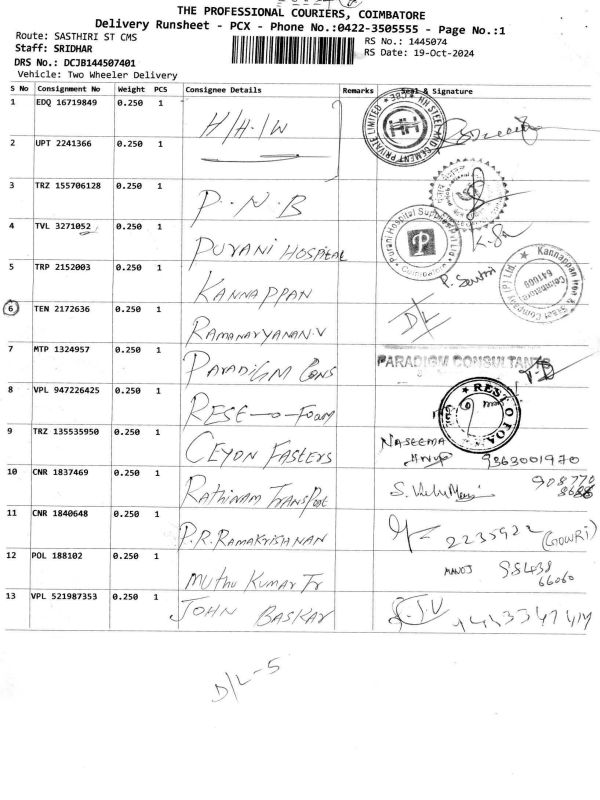 THE PROFESSIONAL COURIERS, COIMBATORE
Delivery Runsheet - PCX - Phone No.:0422-3505555 - Page No.:1
Route: SASTHIRI ST CMS
RS No.: 1445074
Staff: SRIDHAR
RS Date: 19-Oct-2024
DRS No.: DCJB144507401
Vehicle: Two Wheeler Delivery
S No Consignment No Weight PCS Consignee Details Remarks Seal & Signature
1 EDQ 16719849 0.250 1 H/H.I/W
2 UPT 2241366 0.250 1
HH STEEL AND CEMENT PRIVATE LIMITED
HH
3 TRZ 155706128 0.250 1 P.N.B
4 TVL 3271052 0.250 1 PURANI HOSPITAL
Purani Hospital Supplies Pvt Ltd
P
Coimbatore
5 TRP 2152003 0.250 1 KANNAPPAN
Kannappan Iron & Steel Company (P) Ltd.
Coimbatore
641009
6 TEN 2172636 0.250 1 RAMANARYANAN.V D/L
7 MTP 1324957 0.250 1 PARADIGM CONS PARADIGM CONSULTANTS
8 VPL 947226425 0.250 1 RESE-O-FOAM
REST O FOAM
9 TRZ 135535950 0.250 1 CEYON FASTERS NASEEMA
9363001970
10 CNR 1837469 0.250 1 RATHINAM TRANSPORT
908770
11 CNR 1840648 0.250 1 P.R.RAMAKRISHANAN 2235922 (GOWRI)
12 POL 188102 0.250 1 MUTHU KUMAR Tr MANOJ 98438
66060
13 VPL 521987353 0.250 1 JOHN BASKAR
D/L-5